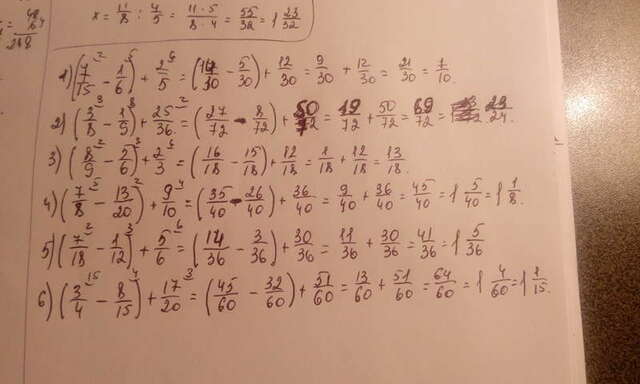 x = 11/8 : 4/5 = 11·5/8·4 = 55/32 = 1 23/32
248
1) (7/15 - 1/6) + 2/5 = (14/30 - 5/30) + 12/30 = 9/30 + 12/30 = 21/30 = 7/10.
2) (3/8 - 1/9) + 25/36 = (27/72 - 8/72) + 50/72 = 19/72 + 50/72 = 69/72 = 23/24.
3) (8/9 - 5/6) + 2/3 = (16/18 - 15/18) + 12/18 = 1/18 + 12/18 = 13/18.
4) (7/8 - 13/20) + 9/10 = (35/40 - 26/40) + 36/40 = 9/40 + 36/40 = 45/40 = 1 5/40 = 1 1/8.
5) (7/18 - 1/12) + 5/6 = (14/36 - 3/36) + 30/36 = 11/36 + 30/36 = 41/36 = 1 5/36
6) (3/4 - 8/15) + 17/20 = (45/60 - 32/60) + 51/60 = 13/60 + 51/60 = 64/60 = 1 4/60 = 1 1/15.